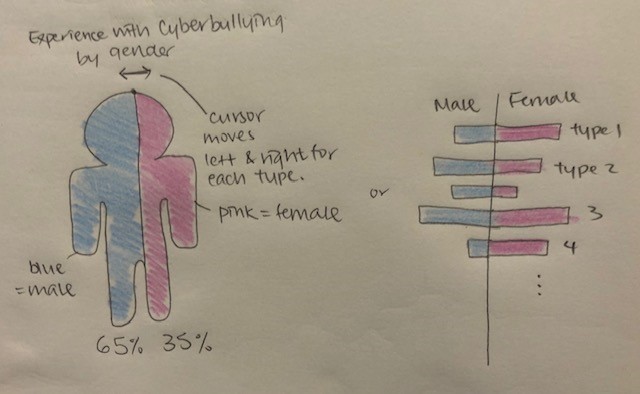 Experience with Cyberbullying
by gender
cursor
moves
left & right for
each type.
pink = female
blue
= male
65% 35%
or
Male Female
type 1
type 2
3
4